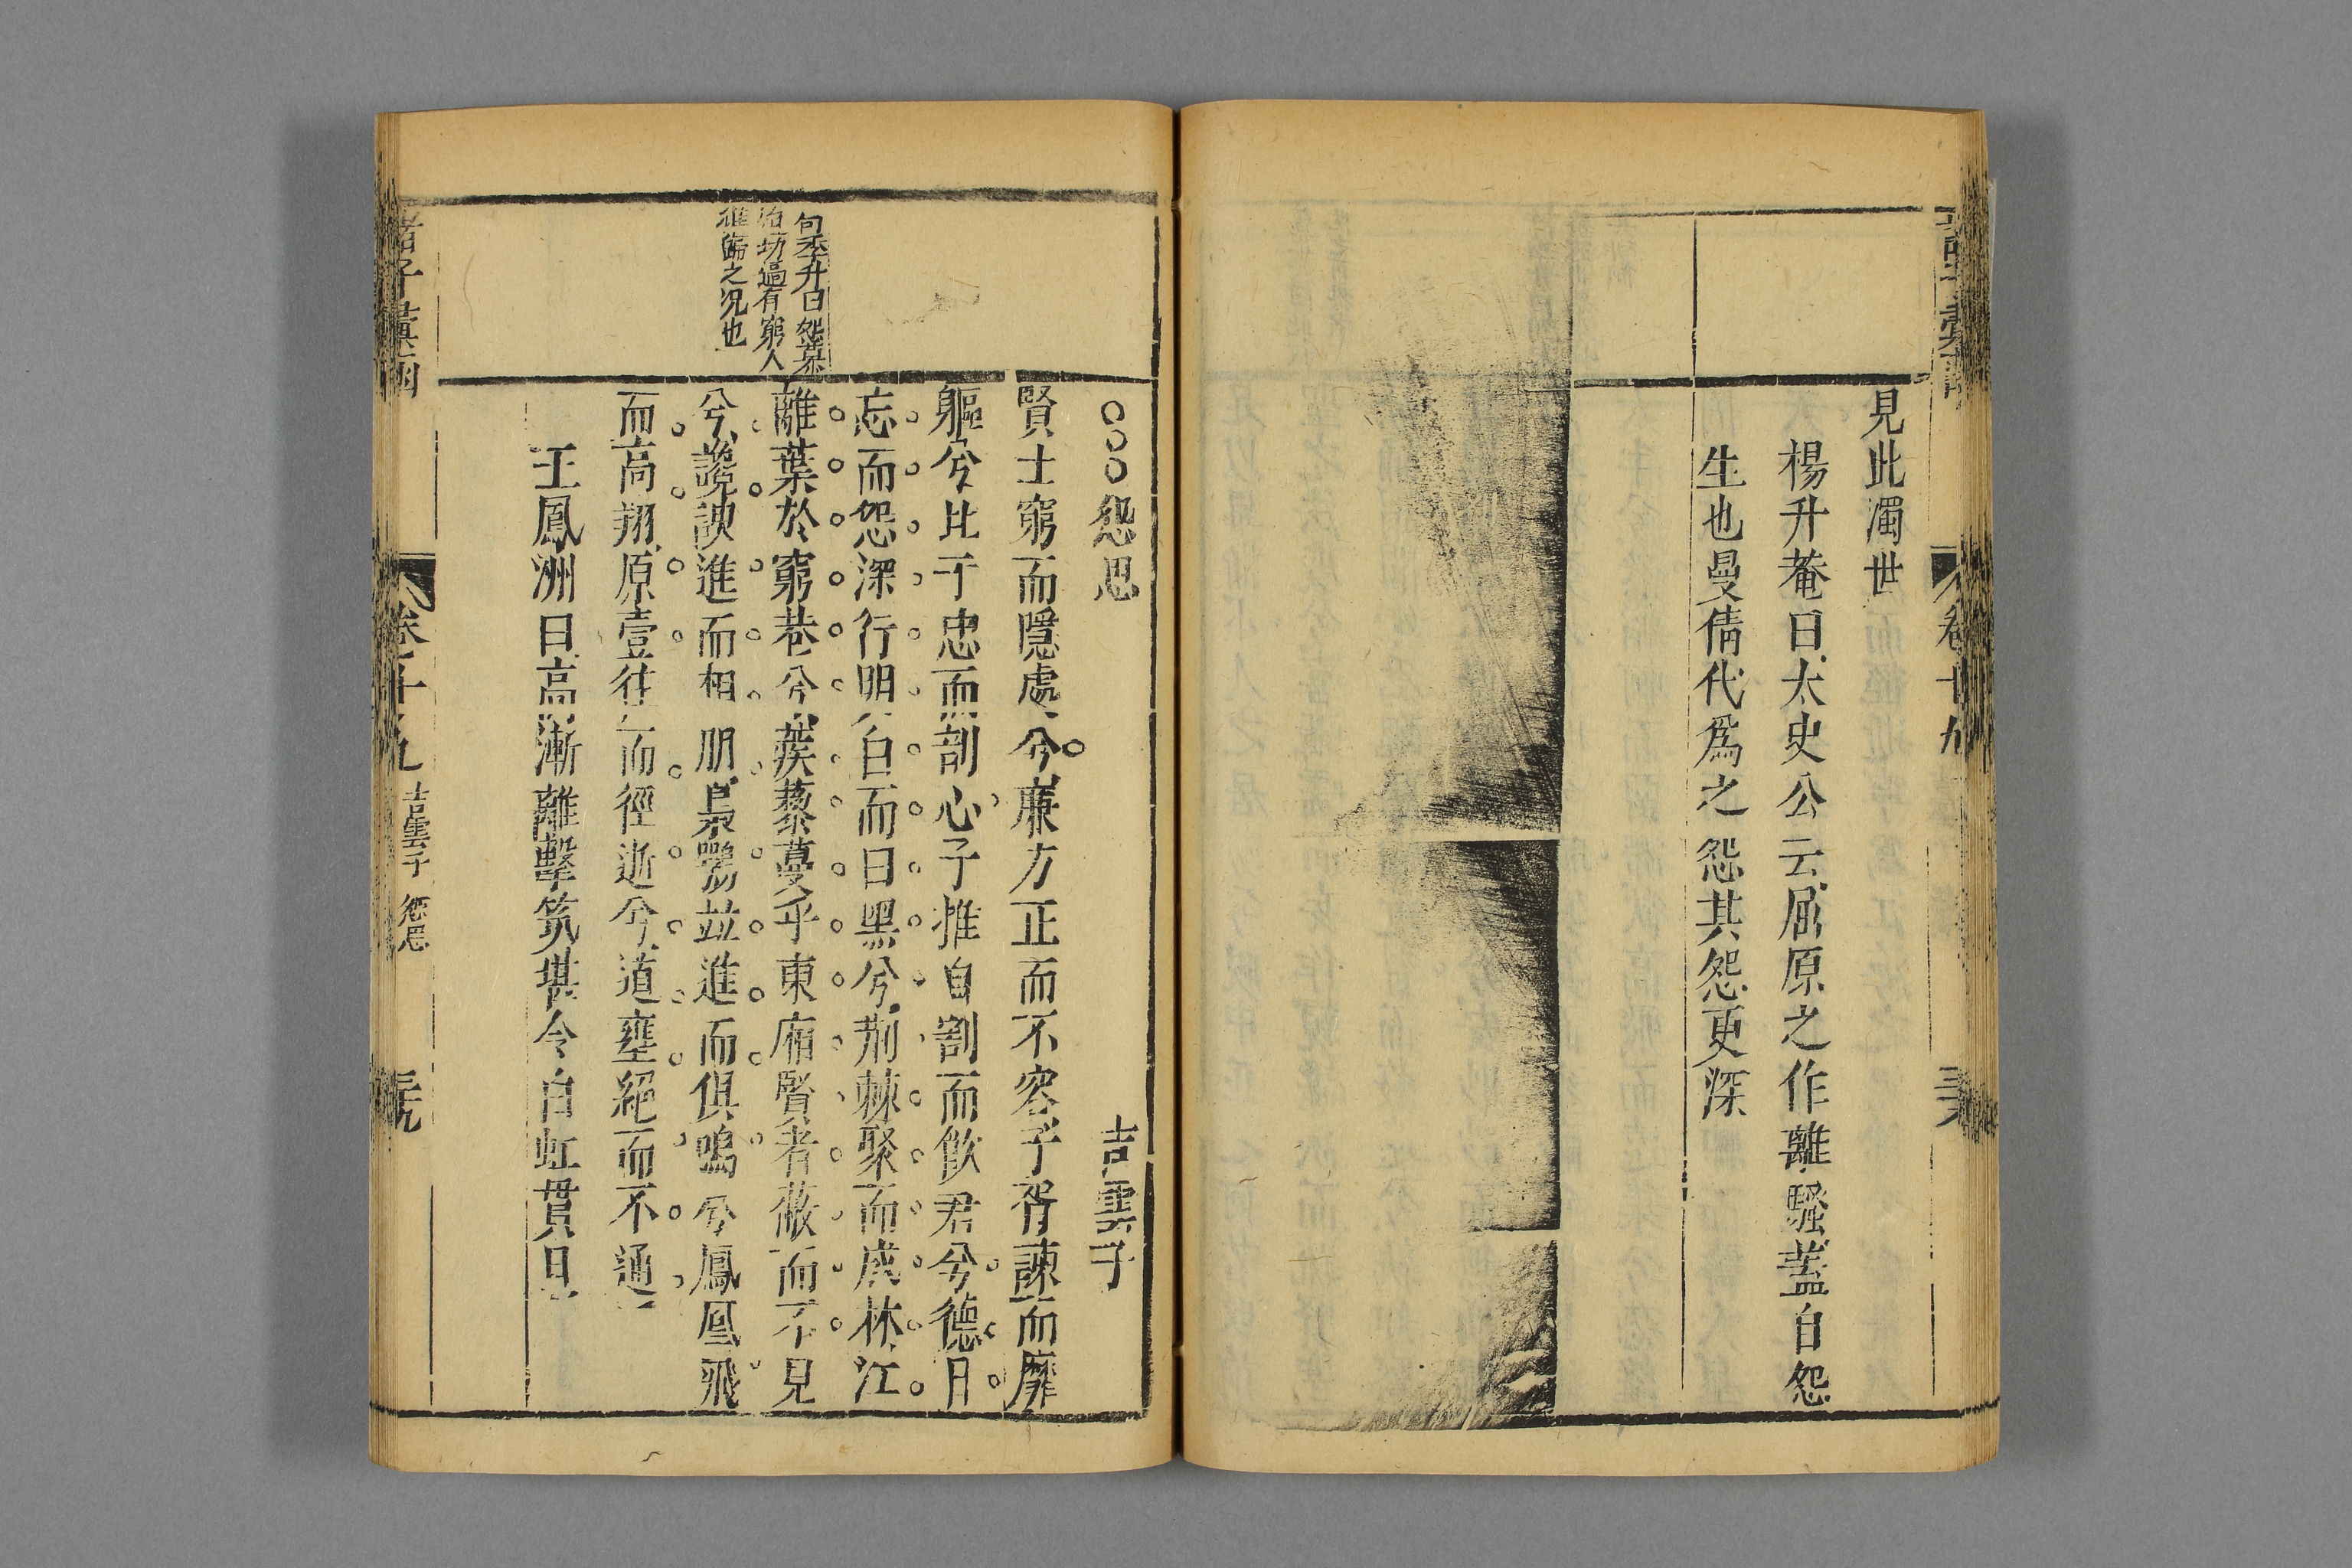 見此濁世
楊升菴曰太史公云屈原之作離騷蓋自怨
生也曼倩代爲之怨其怨更深
卷十九
○○○怨思
吉雲子
賢士窮而隱處兮廉方正而不容子胥諫而靡
軀兮比干忠而剖心子推自割而飲君兮德日
忘而怨深行明白而曰黑兮荊棘聚而成林江
離葉於窮巷兮蒺藜蔓乎東廂賢者蔽而不見
兮讒諛進而相朋梟鴞並進而俱鳴兮鳳凰飛
而高翔原壹往而徑逝兮道壅絕而不通
王鳳洲曰高漸離擊筑堪令白虹貫日
句季升曰怨慕
有窮人
之況也
諸子彙函
卷十九
吉雲子
怨思